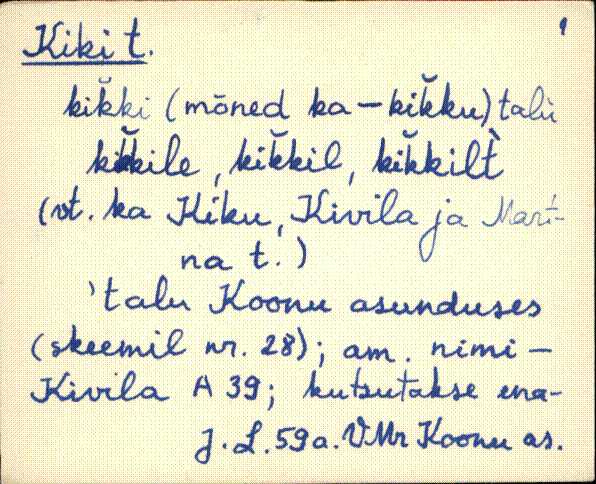 Kiki t. 1
kik̆ki (mõned ka – kik̆ku) talù
kik̆kile, kik̆kil, kik̆kilt̀
(vt. ka Kiku, Kivila ja Mart-
na t.)
'talu Koonu asunduses
(skeemil nr. 28); am. nimi –
Kivila A 39; kutsutakse ena-
J. L. 59 a. VMr Koonu as.